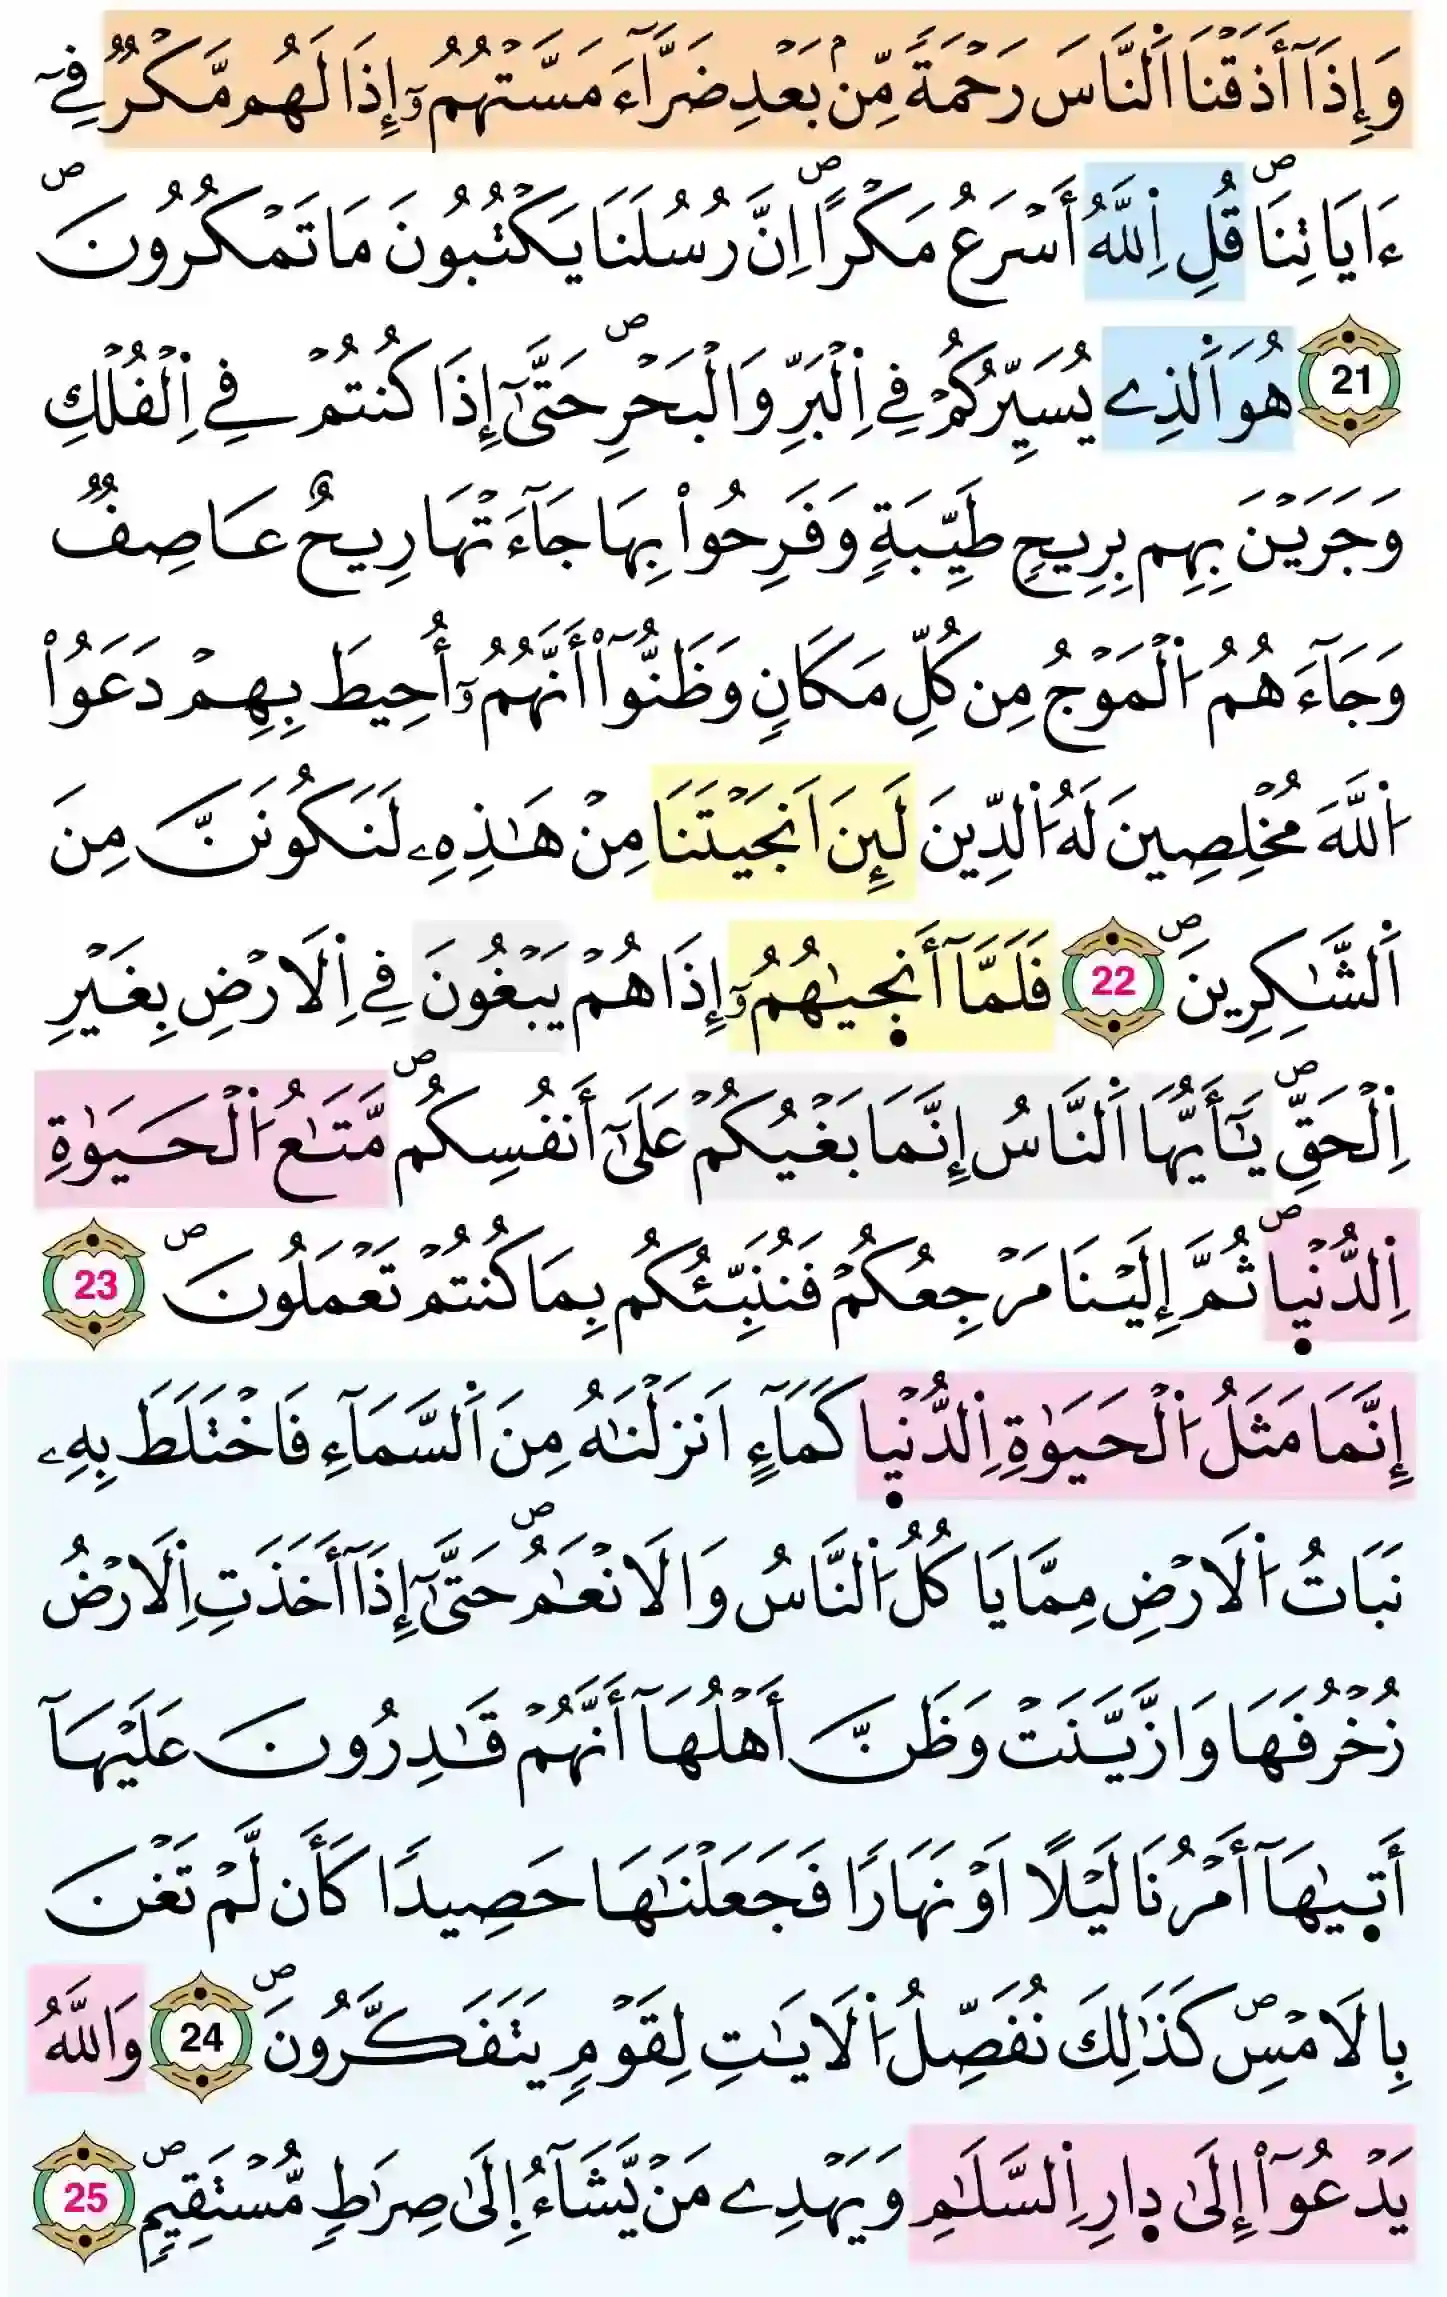 وَإِذَآ أَذَقْنَا اَ۬لنَّاسَ رَحْمَةٗ مِّنۢ بَعْدِ ضَرَّآءَ مَسَّتْهُمُۥٓ إِذَا لَهُم مَّكْرٞ فِےٓ
ءَايَاتِنَاۖ قُلِ اِ۬للَّهُ أَسْرَعُ مَكْراًۖ اِنَّ رُسُلَنَا يَكْتُبُونَ مَا تَمْكُرُونَۖ
21 هُوَ اَ۬لذِے يُسَيِّرُكُمْ فِے اِ۬لْبَرِّ وَالْبَحْرِۖ حَتَّىٰٓ إِذَا كُنتُمْ فِے اِ۬لْفُلْكِ
وَجَرَيْنَ بِهِم بِرِيحٖ طَيِّبَةٖ وَفَرِحُواْ بِهَا جَآءَتْهَا رِيحٌ عَاصِفٞ
وَجَآءَهُمُ اُ۬لْمَوْجُ مِن كُلِّ مَكَانٖ وَظَنُّوٓاْ أَنَّهُمُۥٓ أُحِيطَ بِهِمْ دَعَوُاْ
اُ۬للَّهَ مُخْلِصِينَ لَهُ اُ۬لدِّينَ لَئِنَ اَنجَيْتَنَا مِنْ هَٰذِهِۦ لَنَكُونَنَّ مِنَ
اَ۬لشَّٰكِرِينَۖ 22 فَلَمَّآ أَنج۪يٰهُمُۥٓ إِذَا هُمْ يَبْغُونَ فِے اِ۬لَارْضِ بِغَيْرِ
اِ۬لْحَقِّۖ يَٰٓأَيُّهَا اَ۬لنَّاسُ إِنَّمَا بَغْيُكُمْ عَلَىٰٓ أَنفُسِكُمۖ مَّتَٰعُ اُ۬لْحَيَوٰةِ
اِ۬لدُّنْي۪اۖ ثُمَّ إِلَيْنَا مَرْجِعُكُمْ فَنُنَبِّئُكُم بِمَا كُنتُمْ تَعْمَلُونَۖ 23
إِنَّمَا مَثَلُ اُ۬لْحَيَوٰةِ اِ۬لدُّنْي۪ا كَمَآءٍ اَنزَلْنَٰهُ مِنَ اَ۬لسَّمَآءِ فَاخْتَلَطَ بِهِۦ
نَبَاتُ اُ۬لَارْضِ مِمَّا يَاكُلُ اُ۬لنَّاسُ وَالَانْعَٰمُۖ حَتَّىٰٓ إِذَآ أَخَذَتِ اِ۬لَارْضُ
زُخْرُفَهَا وَازَّيَّنَتْ وَظَنَّ أَهْلُهَآ أَنَّهُمْ قَٰدِرُونَ عَلَيْهَآ
أَت۪يٰهَآ أَمْرُنَا لَيْلًا اَوْ نَهَارٗا فَجَعَلْنَٰهَا حَصِيدٗا كَأَن لَّمْ تَغْنَ
بِالَامْسِۖ كَذَٰلِكَ نُفَصِّلُ اُ۬لَايَٰتِ لِقَوْمٖ يَتَفَكَّرُونَۖ 24 وَاللَّهُ
يَدْعُوٓاْ إِلَىٰ د۪ارِ اِ۬لسَّلَٰمِ وَيَهْدِے مَنْ يَّشَآءُ اِ۪لَىٰ صِرَٰطٖ مُّسْتَقِيمٖۖ 25